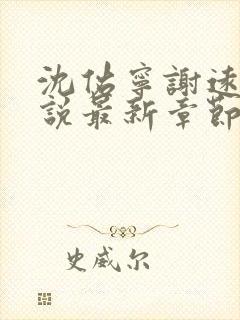 沈佑寧謝遠
說最新章節
史威尔